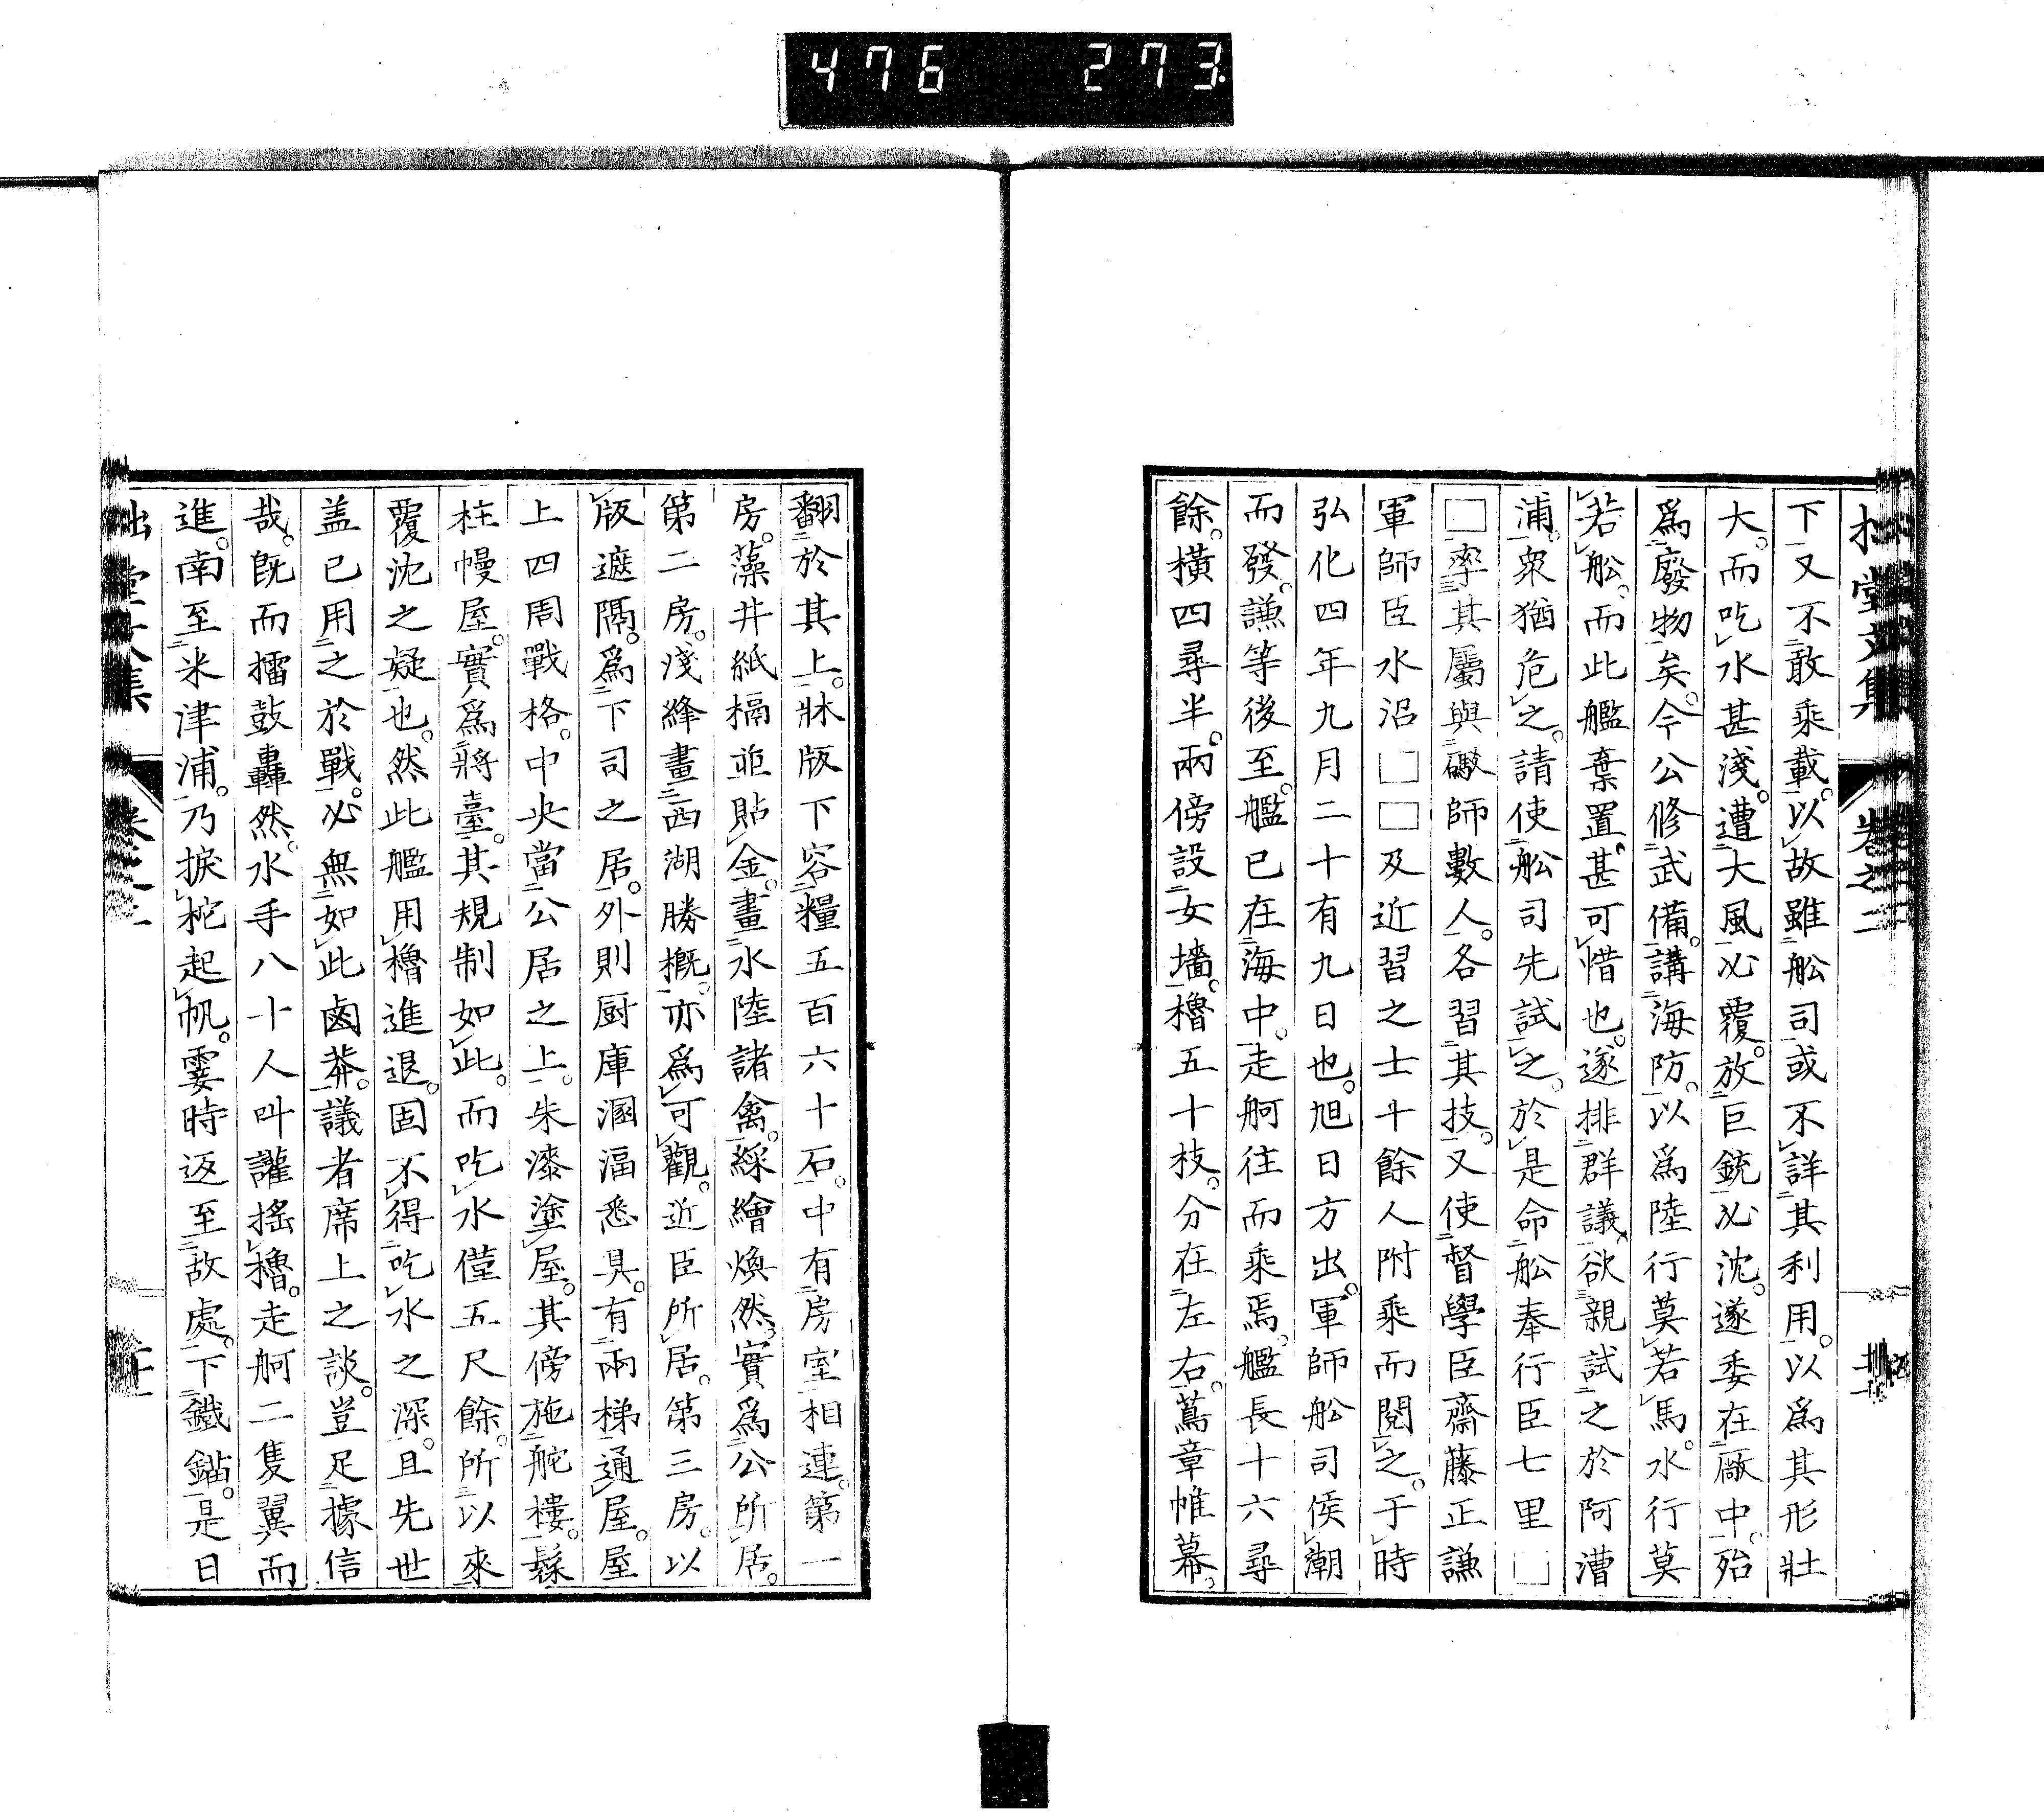 476 273
拙堂文集 卷之二
下又不敢乘載。以故雖舩司或不詳其利用。以爲其形壯
大。而吃水甚淺。遭大風必覆。放巨銃必沈。遂委在廠中。殆
爲廢物矣。今公修武備。講海防。以爲陸行莫若馬。水行莫
若舩。而此艦棄置。甚可惜也。遂排群議。欲親試之於阿漕
浦。衆猶危之。請使舩司先試之。於是命舩奉行臣七里□
□率其屬與礮師數人。各習其技。又使督學臣齋藤正謙
軍師臣水沼□□及近習之士十餘人附乘而閱之。于時
弘化四年九月二十有九日也。旭日方出。軍師舩司侯潮
而發。謙等後至。艦已在海中。走舸往而乘焉。艦長十六尋
餘。橫四尋半。兩傍設女墻。櫓五十枝。分在左右。蔦章帷幕。
翻於其上。牀版下容糧五百六十石。中有房室相連。第一
房。藻井紙槅並貼金。畫水陸諸禽。綵繪煥然。實爲公所居。
第二房。淺絳畫西湖勝概。亦爲可觀。近臣所居。第三房。以
版遮隔。爲下司之居。外則厨庫溷湢悉具。有兩梯通屋。屋
上四周戰格。中央當公居之上。朱漆塗屋。其傍施舵樓。髹
柱幔屋。實爲將臺。其規制如此。而吃水僅五尺餘。所以來
覆沈之疑也。然此艦用櫓進退。固不得吃水之深。且先世
盖已用之於戰。必無如此鹵莽。議者席上之談。豈足據信
哉。旣而擂鼓轟然。水手八十人叫讙搖櫓。走舸二隻翼而
進。南至米津浦。乃捩柁起帆。霎時返至故處。下鐵錨。是日